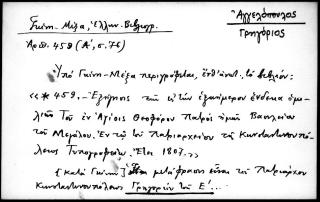 Γκίνη - Μέξα, Ἑλλην. Βιβλιογρ.
Ἀγγελόπουλος
Γρηγόριος
Ἀρ. 459 (Α', σ. 76)
Ὑπὸ Γκίνη - Μέξα περιγράφεται, τὸ βιβλίον:
«* 459. - Ἐξήγησις τῆς εἰς τὴν ἑξαήμερον ἕνδεκα ὁμι-
λίας Τοῦ ἐν Ἁγίοις Θεοφόρου Πατρὸς ἡμῶν Βασιλείου
τοῦ Μεγάλου. Ἐν τῷ τοῦ Πατριαρχείου τῆς Κωνσταντινουπό-
λεως Τυπογραφείῳ. Ἔτει 1807.»
[κατὰ Γκίνη] μετάφρασις εἶναι τοῦ Πατριάρχου
Κωνσταντινουπόλεως Γρηγορίου τοῦ Ε'...